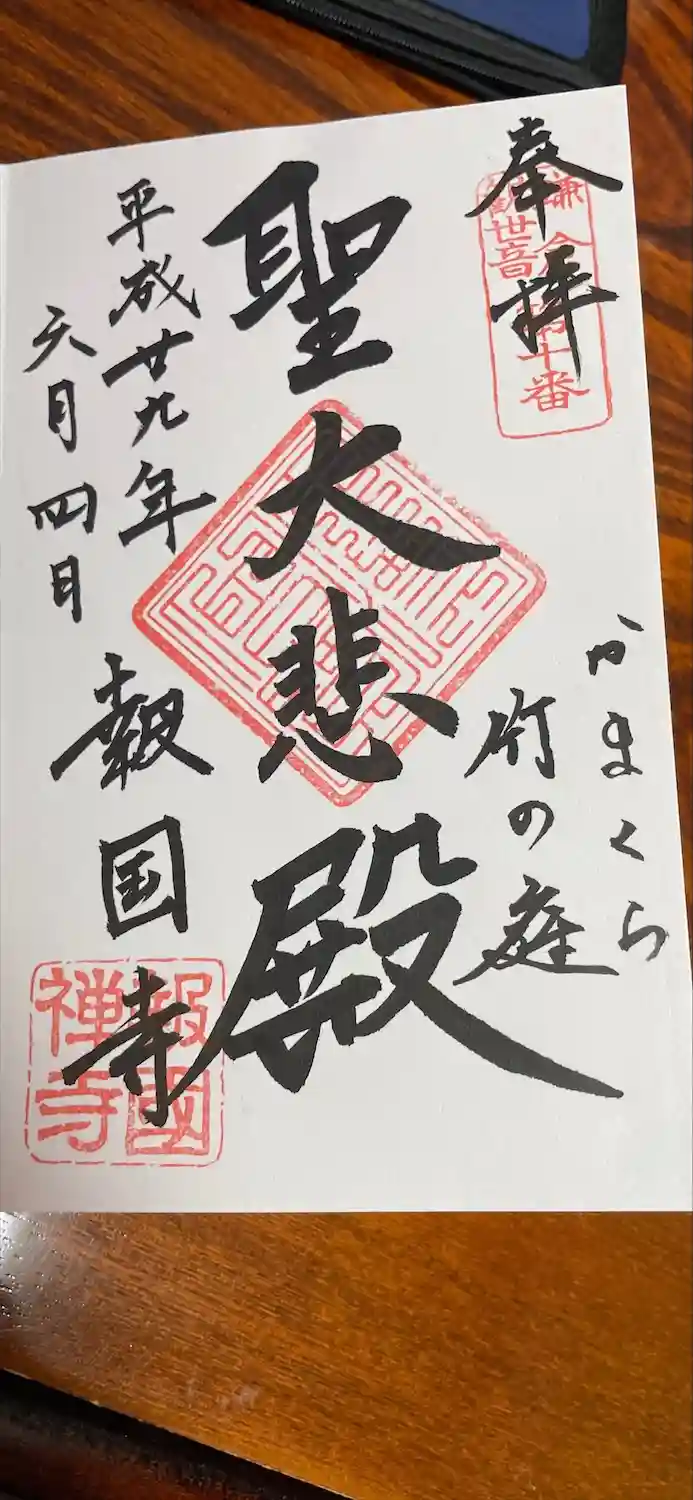 奉拝
鎌倉
観世音
第十番
かまくら
竹の庭
聖大悲殿
平成廿九年
六月四日
報国寺
報國
禅寺